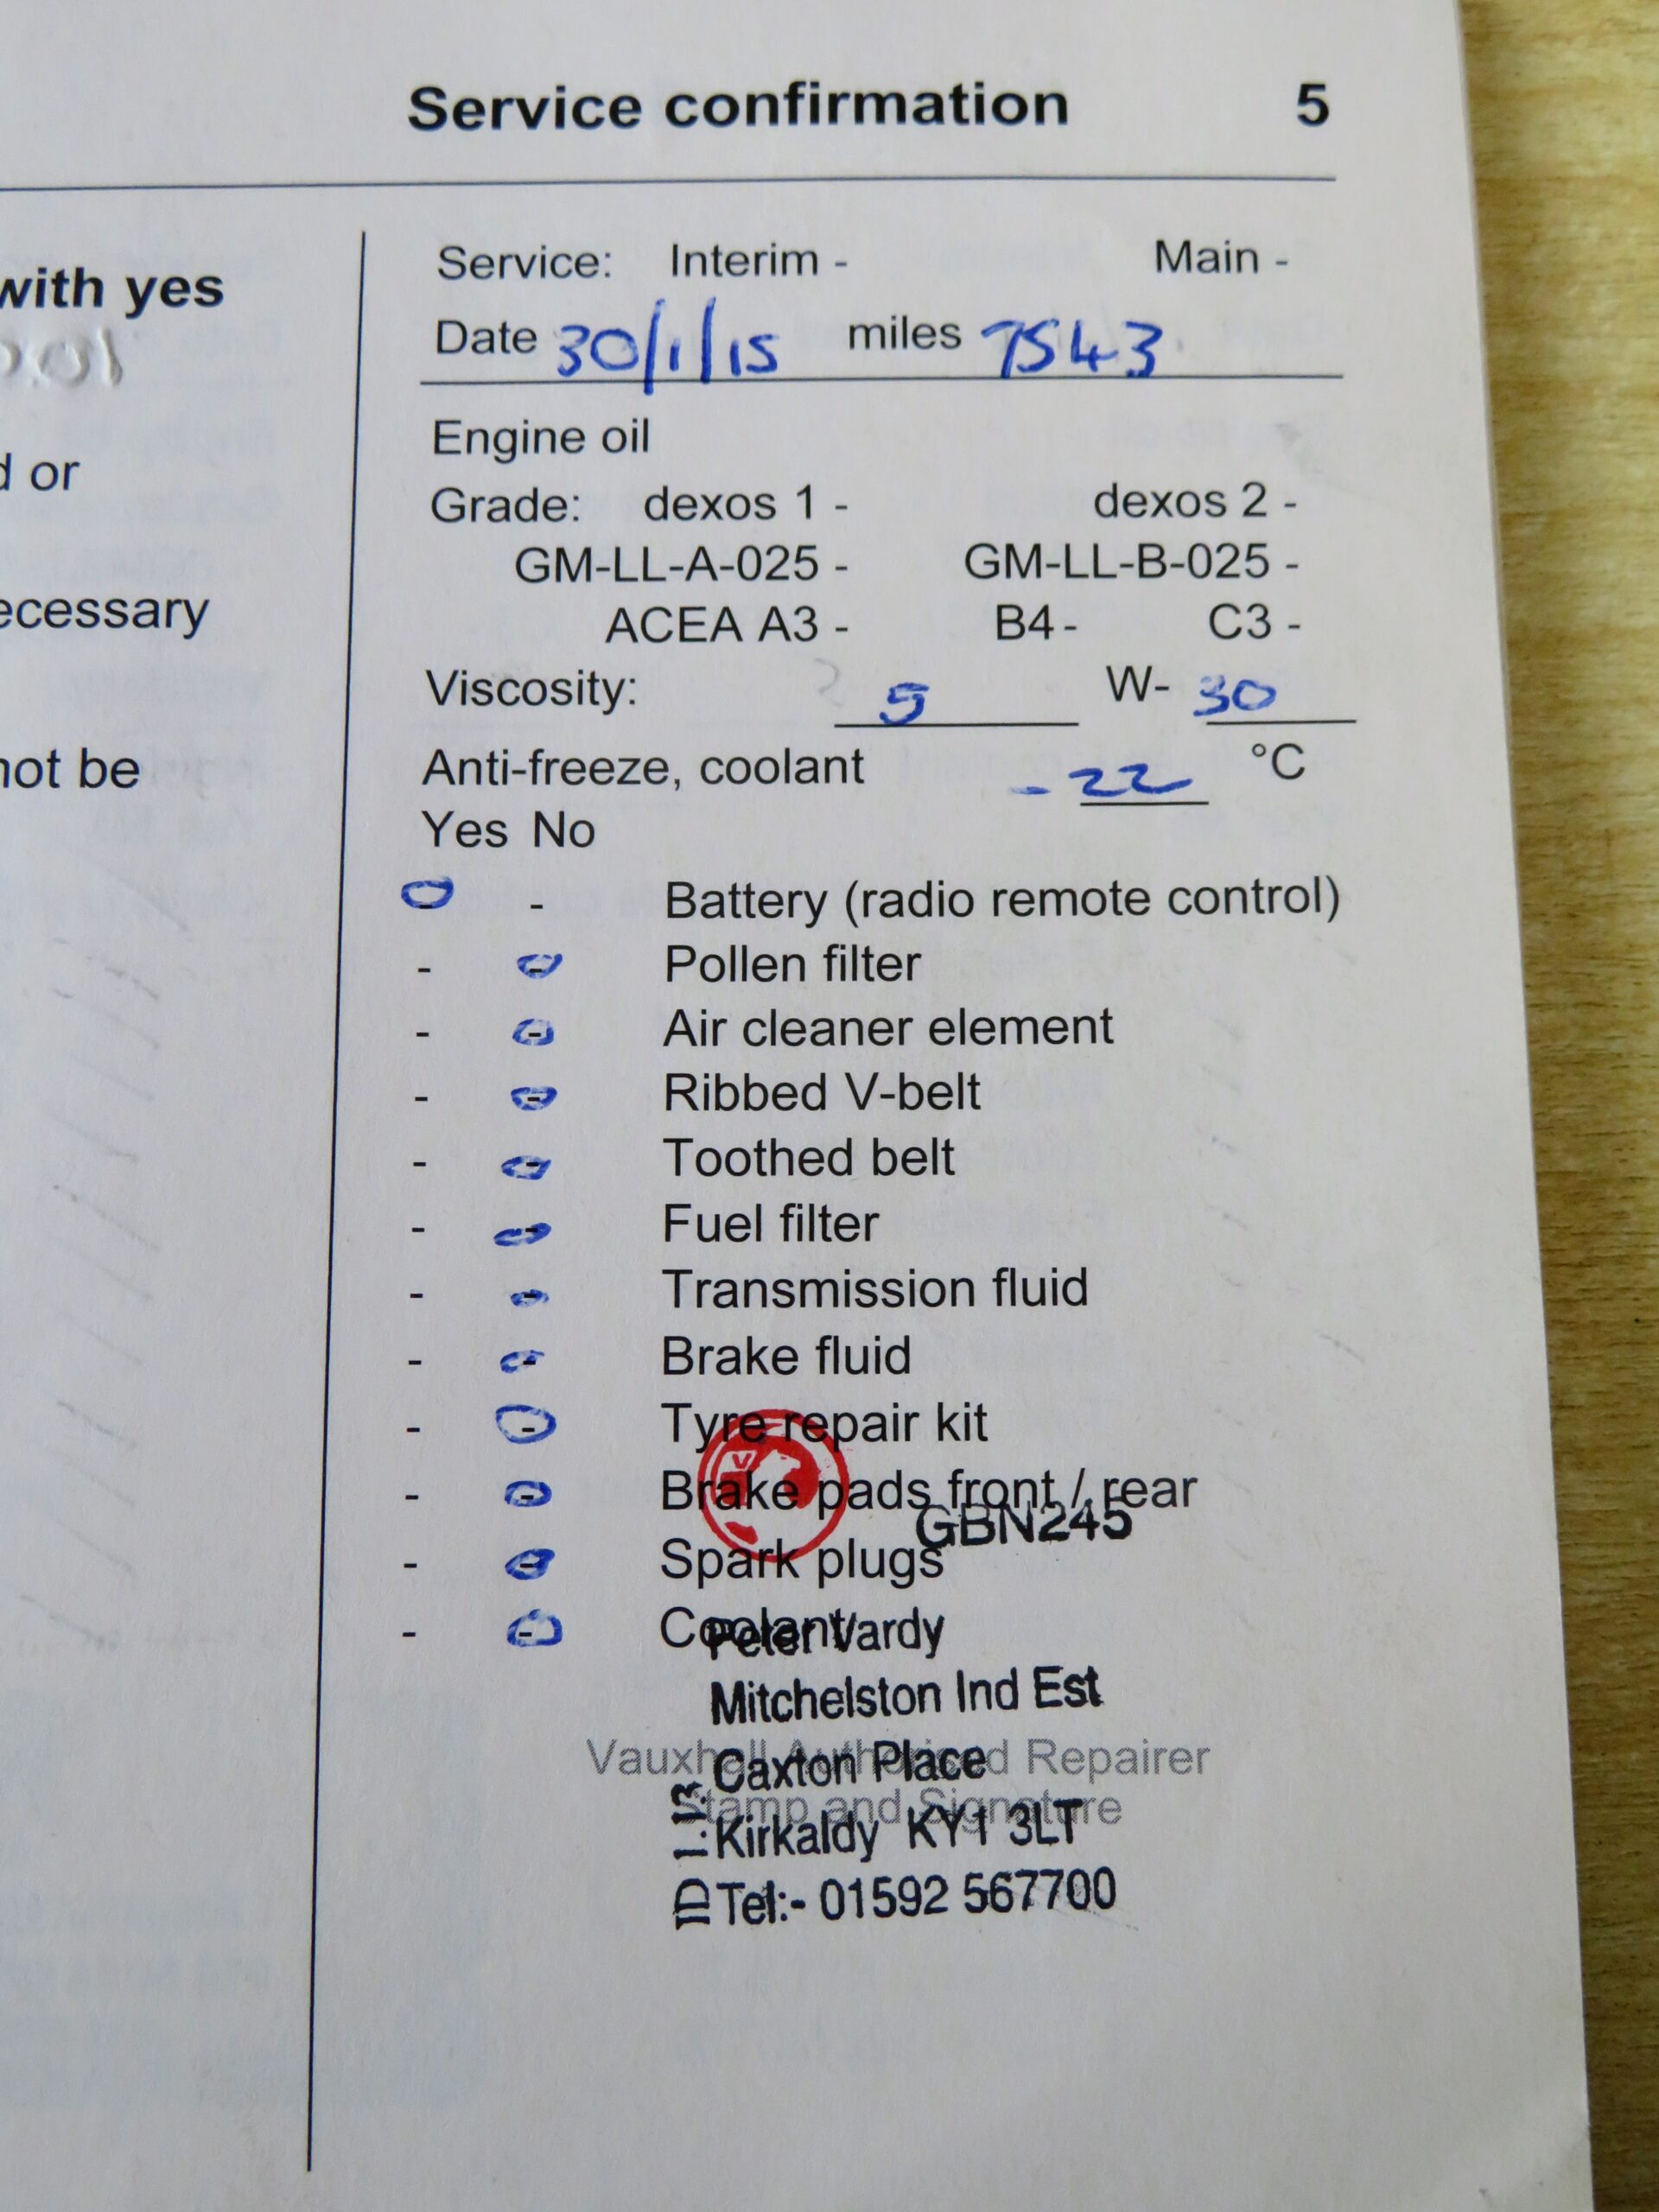 Service confirmation 5
with yes
d or
ecessary
not be
Service: Interim - Main -
Date 30/1/15 miles 7543
Engine oil
Grade: dexos 1 - dexos 2 -
GM-LL-A-025 - GM-LL-B-025 -
ACEA A3 - B4 - C3 -
Viscosity: 5 W- 30
Anti-freeze, coolant -22 °C
Yes No
- - Battery (radio remote control)
- - Pollen filter
- - Air cleaner element
- - Ribbed V-belt
- - Toothed belt
- - Fuel filter
- - Transmission fluid
- - Brake fluid
- - Tyre repair kit
- - Brake pads front / rear
GBN245
- - Spark plugs
- - Coolant
Peter Vardy
Mitchelston Ind Est
Vauxhall Authorised Repairer
Caxton Place
Stamp and Signature
Kirkaldy KY1 3LT
Tel:- 01592 567700